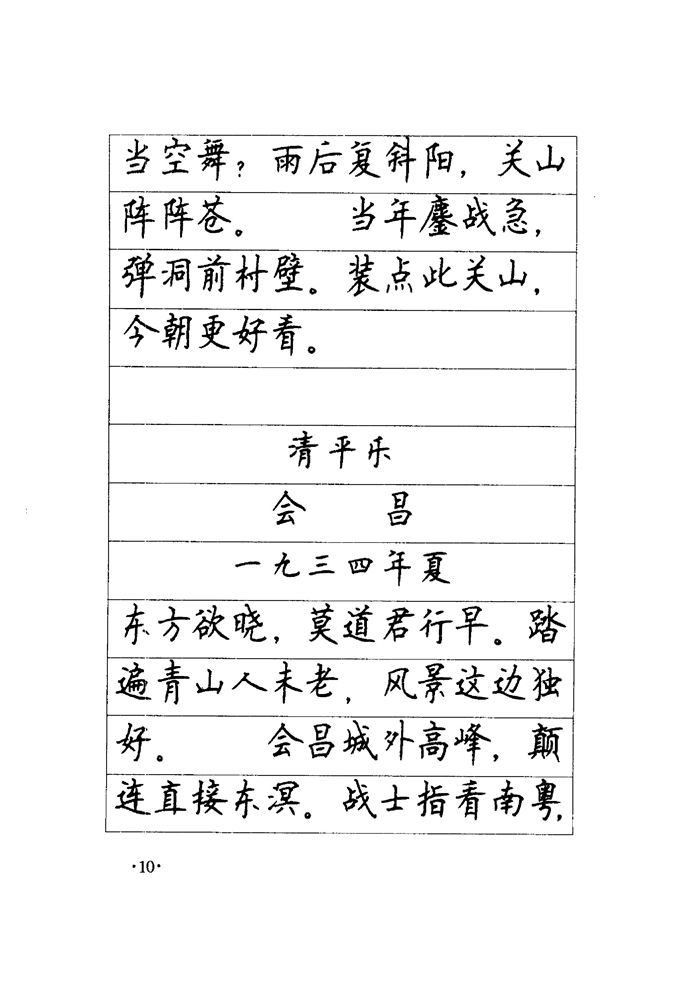 当空舞？雨后复斜阳，关山
阵阵苍。　　当年鏖战急，
弹洞前村壁。装点此关山，
今朝更好看。
清平乐
会　　昌
一九三四年夏
东方欲晓，莫道君行早。踏
遍青山人未老，风景这边独
好。　　会昌城外高峰，颠
连直接东溟。战士指看南粤，
·10·